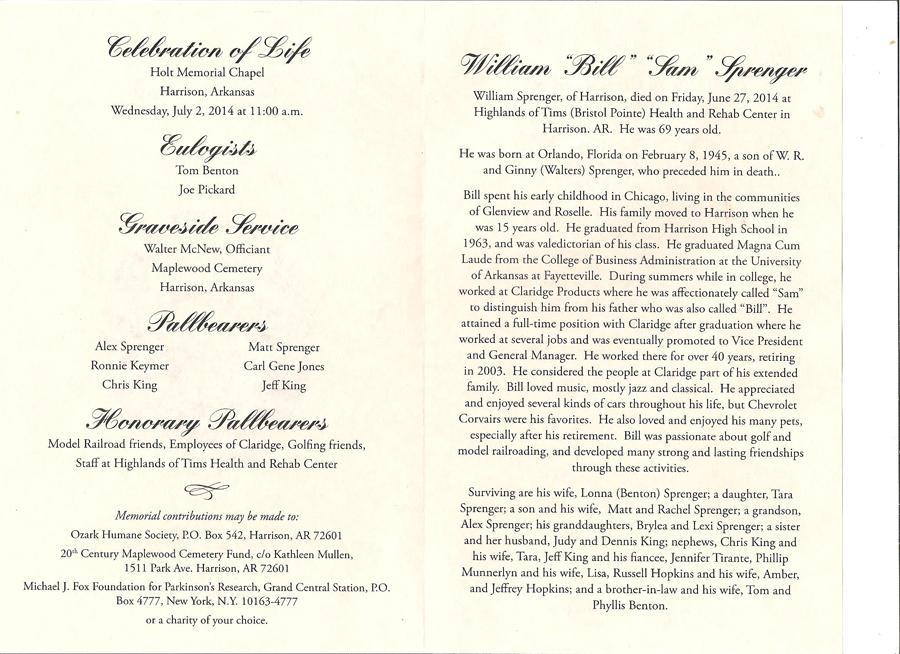 Celebration of Life
Holt Memorial Chapel
Harrison, Arkansas
Wednesday, July 2, 2014 at 11:00 a.m.
Eulogists
Tom Benton
Joe Pickard
Graveside Service
Walter McNew, Officiant
Maplewood Cemetery
Harrison, Arkansas
Pallbearers
Alex Sprenger Matt Sprenger
Ronnie Keymer Carl Gene Jones
Chris King Jeff King
Honorary Pallbearers
Model Railroad friends, Employees of Claridge, Golfing friends,
Staff at Highlands of Tims Health and Rehab Center
Memorial contributions may be made to:
Ozark Humane Society, P.O. Box 542, Harrison, AR 72601
20th Century Maplewood Cemetery Fund, c/o Kathleen Mullen,
1511 Park Ave. Harrison, AR 72601
Michael J. Fox Foundation for Parkinson's Research, Grand Central Station, P.O.
Box 4777, New York, N.Y. 10163-4777
or a charity of your choice.
William "Bill" "Sam" Sprenger
William Sprenger, of Harrison, died on Friday, June 27, 2014 at
Highlands of Tims (Bristol Pointe) Health and Rehab Center in
Harrison. AR. He was 69 years old.
He was born at Orlando, Florida on February 8, 1945, a son of W. R.
and Ginny (Walters) Sprenger, who preceded him in death..
Bill spent his early childhood in Chicago, living in the communities
of Glenview and Roselle. His family moved to Harrison when he
was 15 years old. He graduated from Harrison High School in
1963, and was valedictorian of his class. He graduated Magna Cum
Laude from the College of Business Administration at the University
of Arkansas at Fayetteville. During summers while in college, he
worked at Claridge Products where he was affectionately called "Sam"
to distinguish him from his father who was also called "Bill". He
attained a full-time position with Claridge after graduation where he
worked at several jobs and was eventually promoted to Vice President
and General Manager. He worked there for over 40 years, retiring
in 2003. He considered the people at Claridge part of his extended
family. Bill loved music, mostly jazz and classical. He appreciated
and enjoyed several kinds of cars throughout his life, but Chevrolet
Corvairs were his favorites. He also loved and enjoyed his many pets,
especially after his retirement. Bill was passionate about golf and
model railroading, and developed many strong and lasting friendships
through these activities.
Surviving are his wife, Lonna (Benton) Sprenger; a daughter, Tara
Sprenger; a son and his wife, Matt and Rachel Sprenger; a grandson,
Alex Sprenger; his granddaughters, Brylea and Lexi Sprenger; a sister
and her husband, Judy and Dennis King; nephews, Chris King and
his wife, Tara, Jeff King and his fiancee, Jennifer Tirante, Phillip
Munnerlyn and his wife, Lisa, Russell Hopkins and his wife, Amber,
and Jeffrey Hopkins; and a brother-in-law and his wife, Tom and
Phyllis Benton.